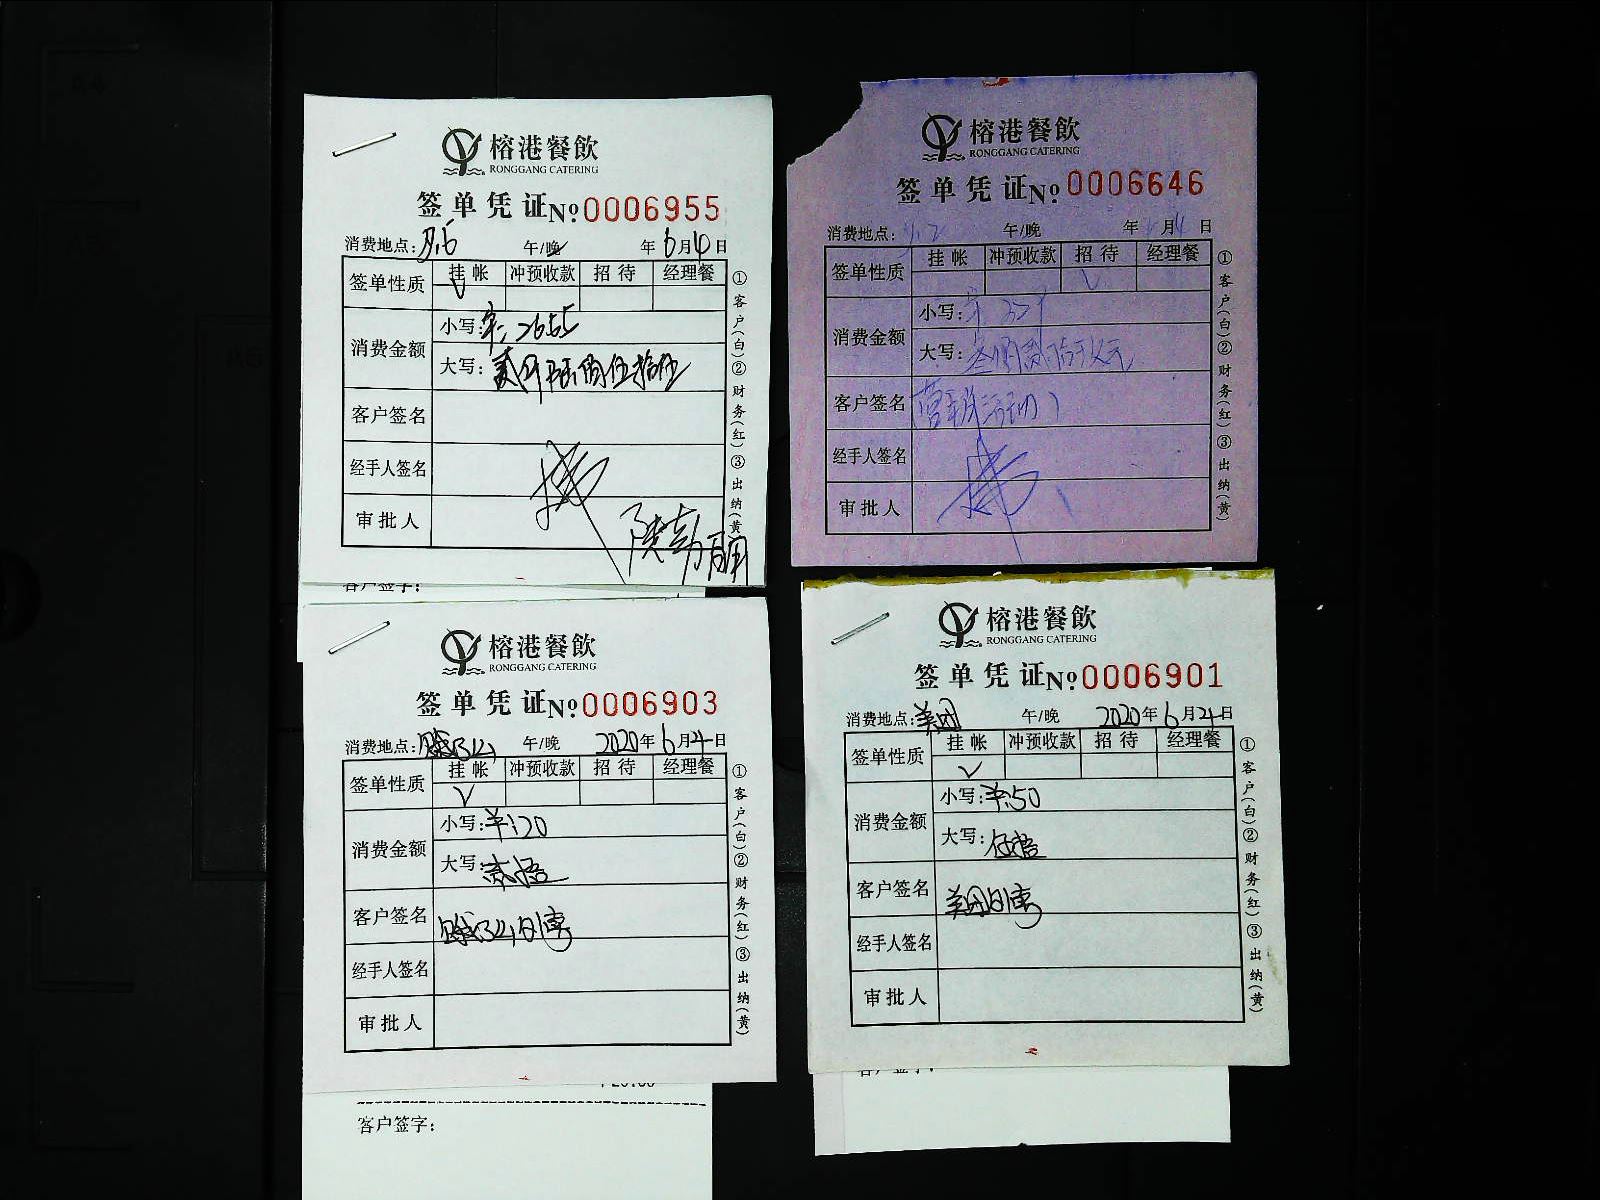 榕港餐飲
RONGGANG CATERING
签单凭证№0006955
消费地点: 午/晚 年6月4日
签单性质 挂帐 冲预收款 招待 经理餐
消费金额
小写:¥:2655
大写:贰仟陆佰伍拾伍
客户签名
经手人签名
审批人
①客户(白)②财务(红)③出纳(黄)
客户签字:
榕港餐飲
RONGGANG CATERING
签单凭证№0006646
消费地点: 午/晚 年 月4日
签单性质 挂帐 冲预收款 招待 经理餐
消费金额
小写:
大写:
客户签名
经手人签名
审批人
①客户(白)②财务(红)③出纳(黄)
榕港餐飲
RONGGANG CATERING
签单凭证№0006903
消费地点: 午/晚 2020年6月4日
签单性质 挂帐 冲预收款 招待 经理餐
消费金额
小写:¥:20
大写:
客户签名
经手人签名
审批人
①客户(白)②财务(红)③出纳(黄)
客户签字:
榕港餐飲
RONGGANG CATERING
签单凭证№0006901
消费地点:美团 午/晚 2020年6月4日
签单性质 挂帐 冲预收款 招待 经理餐
消费金额
小写:¥:50
大写:伍拾
客户签名 美团
经手人签名
审批人
①客户(白)②财务(红)③出纳(黄)